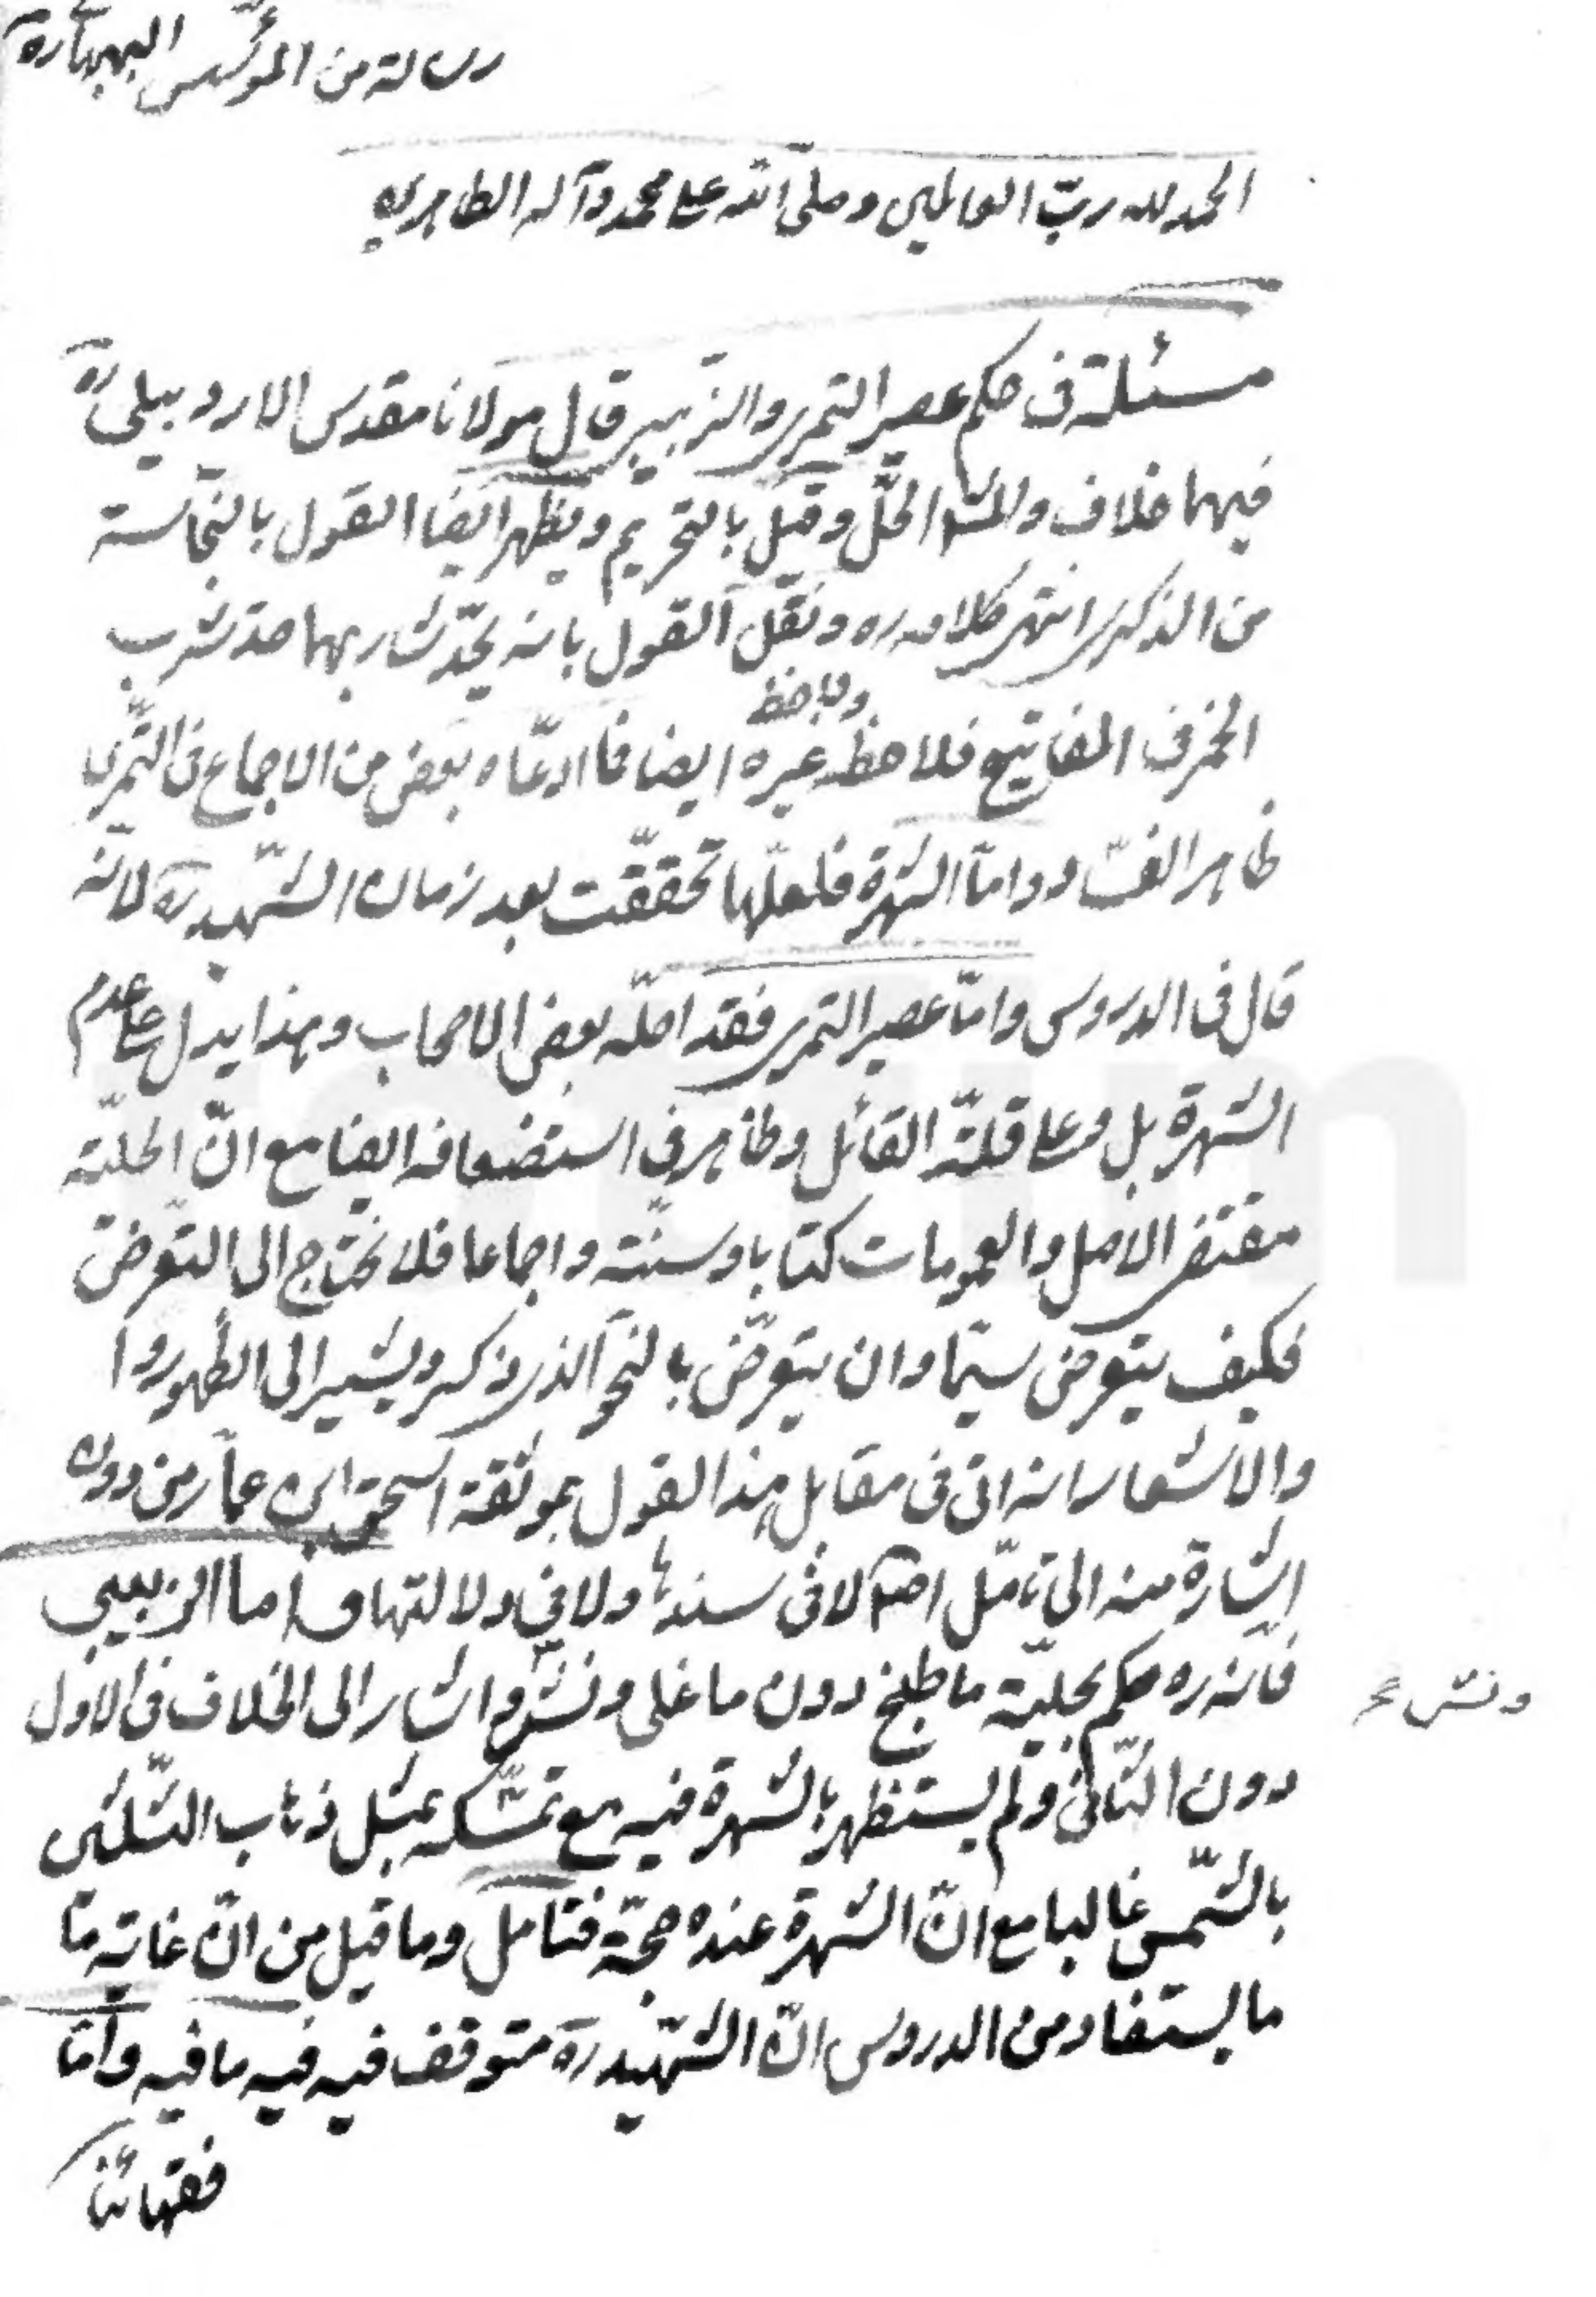 رسالة من المؤسّس البهبهاني ره
الحمد لله ربّ العالمين وصلّى الله على محمد وآله الطاهرين
مسئلة في حكم عصير التمري والزبيبي قال مولانا مقدس الاردبيلي ره
فيهما خلاف والمشهور الحلّ وقيل بالتحريم ويظهر ايضا القول بالنجاسة
من الذكرى انتهى كلامه ره ونقل القول بانه يحدّ شاربهما حدّ شرب
الخمر في المفاتيح فلاحظه غيره ايضا فما ادعّاه بعض من الاجماع في التّمري
ولاحظ
ظاهر الفساد وامّا الشهرة فلعلّها تحقّقت بعد زمان الشّهيد ره لانّه
قال في الدروس وامّا عصير التمري فقد احلّه بعض الاصحاب وهذا يدل على عدم
الشهرة بل وعلى قلّة القائل وظاهر في استضعافه ايضا مع انّ الحليّة
مقتضى الاصل والعمومات كتابا وسنّة واجماعا فلا يحتاج الى التعّرض
فكيف يتعرض سيّما وان يتعرّض بالنحو الذي ذكر ويشير الى الظهور وا
والاشعار انه اتى في مقابل هذا القول بموثقة اسحق ابن عمار من دون
اشارة منه الى تامّل اصلا لا في سندها ولا في دلالتها واما الزبيبي
فانّه ره حكم بحليّة ما طبخ دون ما غلى ونشّ واشار الى الخلاف في الاول
ونش
دون الثّاني ولم يستظهر بالشهرة فيه مع تمسّكه بمثل ذهاب الثّلثين
بالشّمس غالبا مع انّ الشهرة عنده حجّة فتامل وما قيل من انّ غاية ما
ما يستفاد من الدروس انّ الشّهيد ره متوقف فيه فيه ما فيه وامّا
فقهائنا